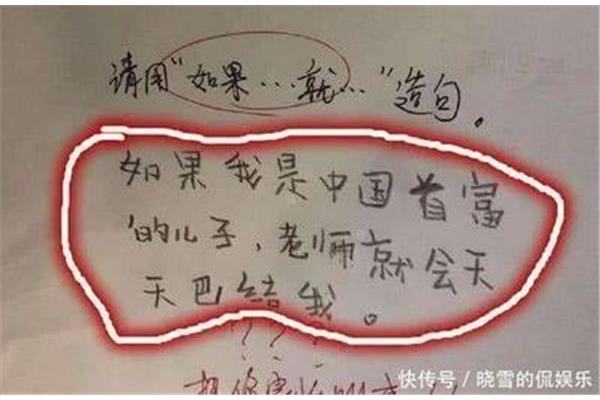 请用“如果…就…”造句。
如果我是中国首富
的儿子，老师就会天
天巴结我。
？？？
快传号/晓雪的侃娱乐